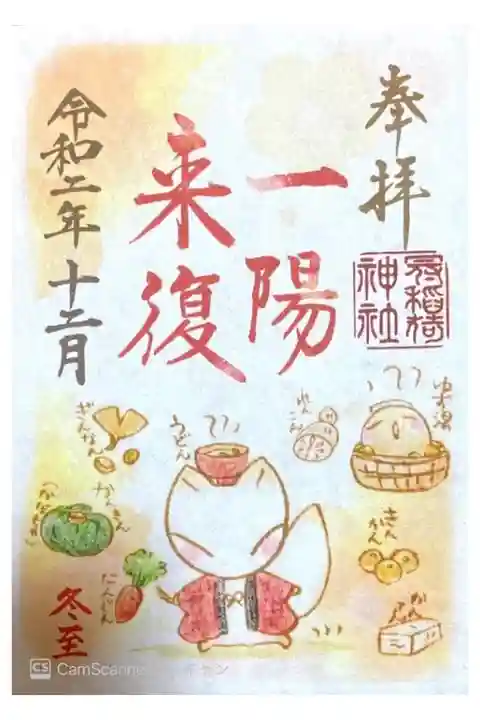 奉拝
冠稲荷
神社
一陽
来復
令和二年十二月
ぎんなん
うどん
れんこん
ゆず湯
かんきん
(かぼちゃ)
にんじん
きん
かん
かん
てん
冬至
CS CamScanne